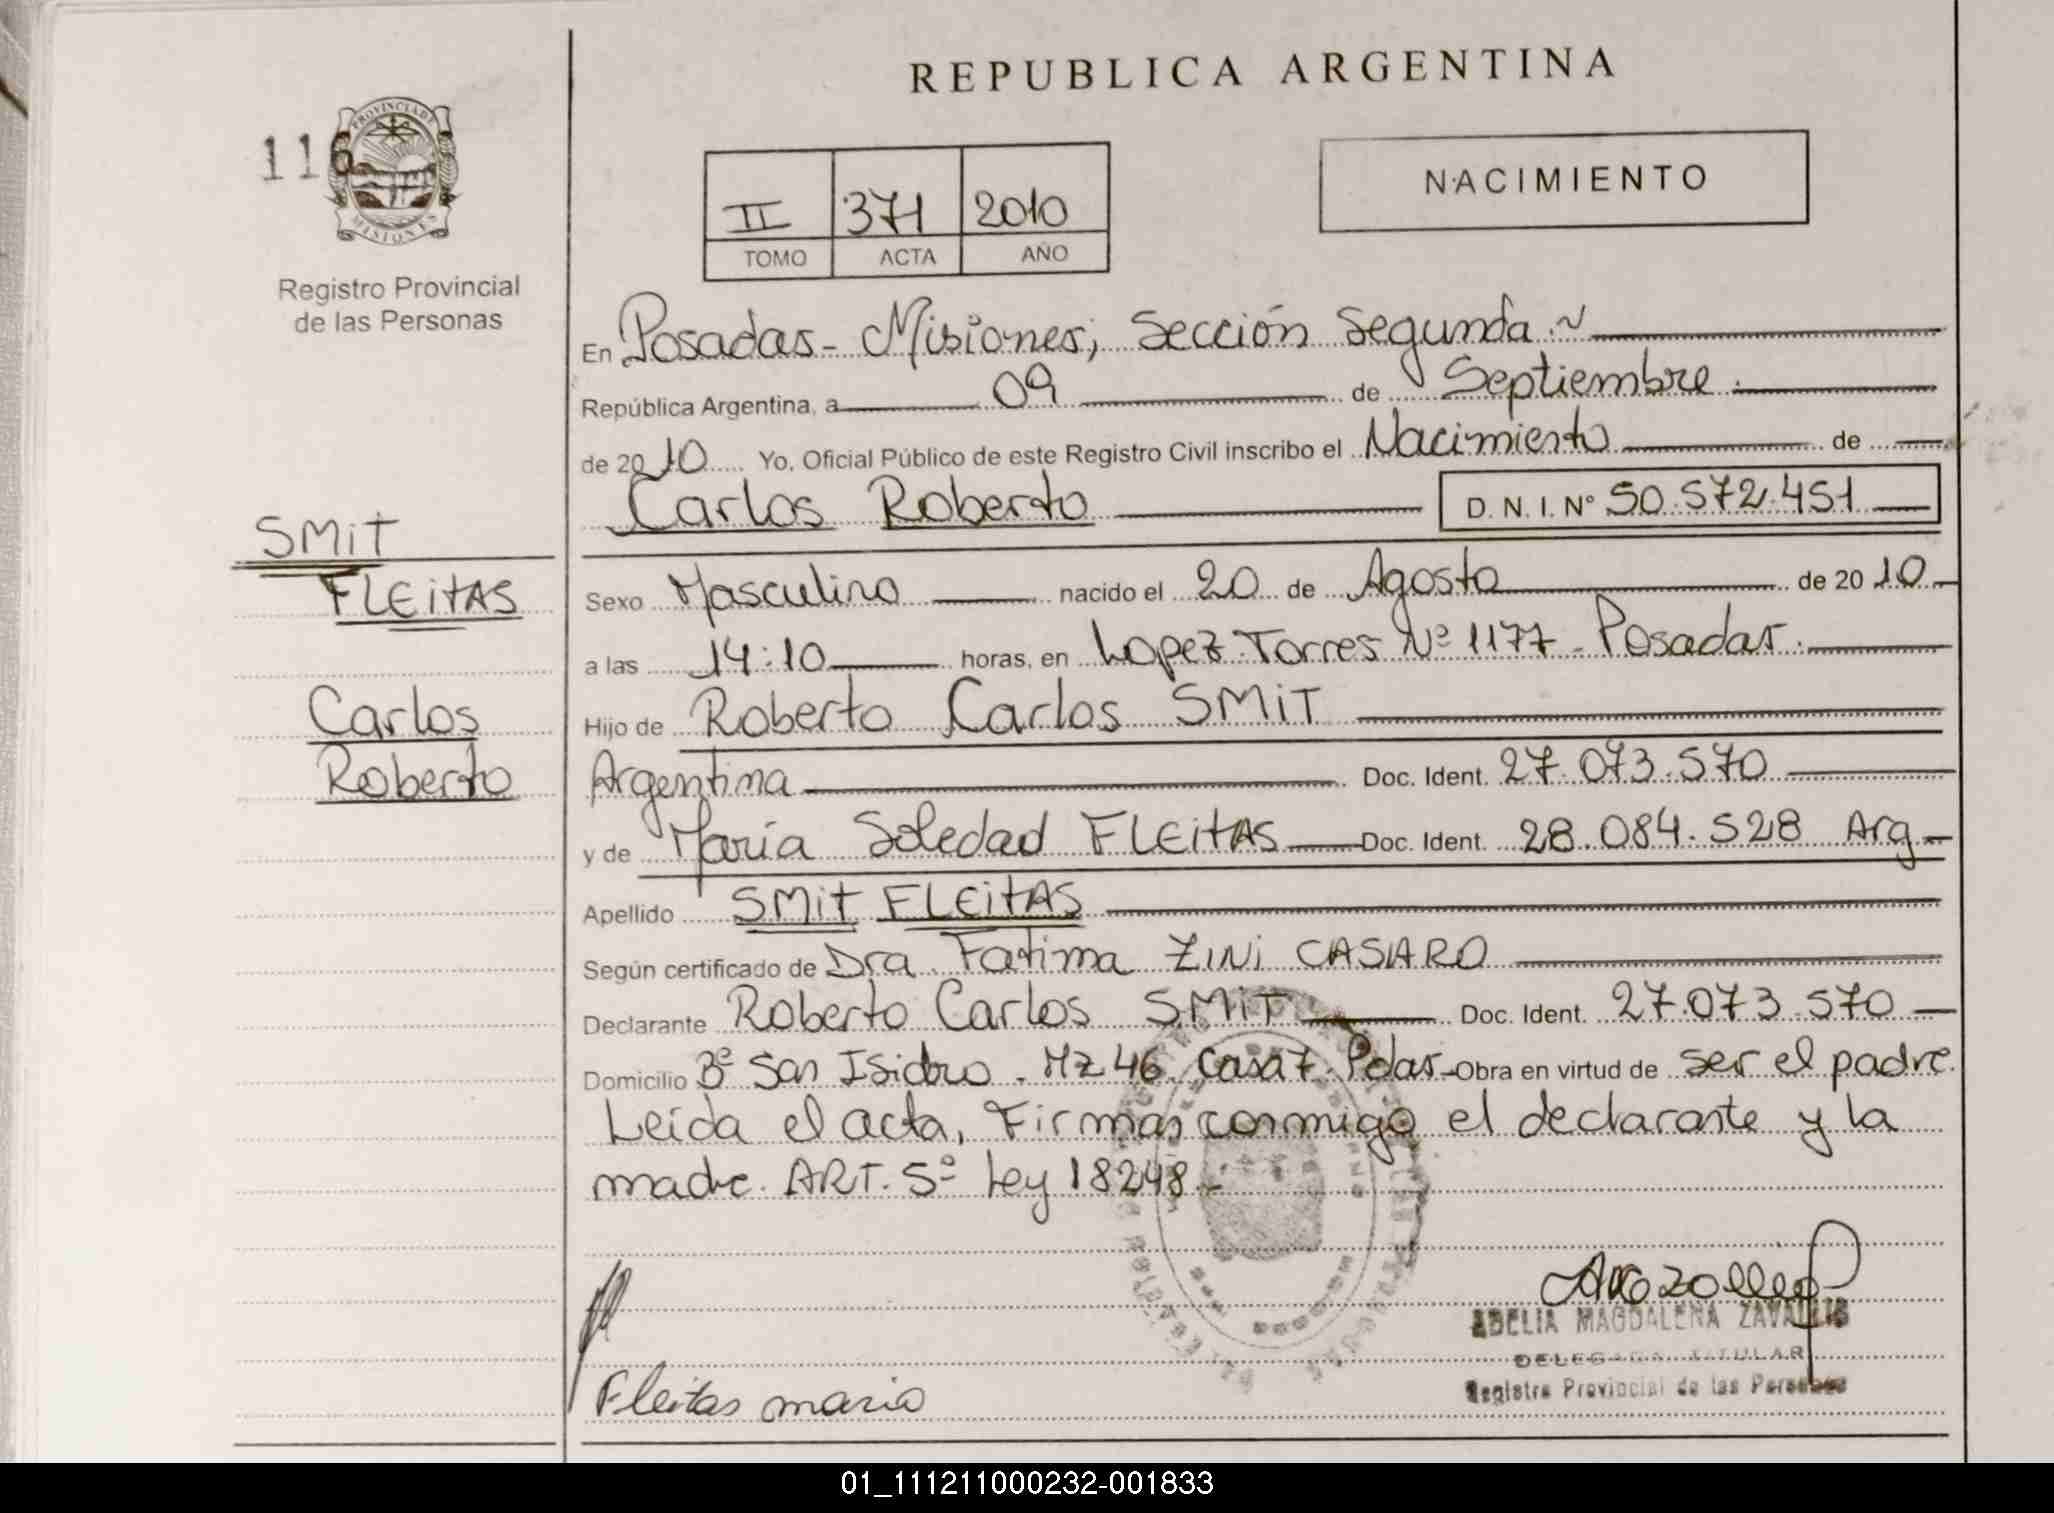 REPUBLICA ARGENTINA
116
PROVINCIA DE
MISIONES
Registro Provincial
de las Personas
II 371 2010
TOMO ACTA AÑO
NACIMIENTO
En Posadas - Misiones, Sección Segunda.
República Argentina, a 09 de Septiembre.
de 2010 Yo, Oficial Público de este Registro Civil inscribo el Nacimiento de
Carlos Roberto D. N. I. N° 50.572.451
SMiT
FLEitAS
Carlos
Roberto
Sexo Masculino nacido el 20 de Agosto de 2010
a las 14:10 horas, en Lopez Torres Nº 1177 - Posadas.
Hijo de Roberto Carlos SMiT
Argentina Doc. Ident. 27.073.570
y de María Soledad FLEitAS Doc. Ident. 28.084.528 Arg
Apellido SMit FLEitAS
Según certificado de Dra. Fatima ZINi CASARO
Declarante Roberto Carlos SMiT Doc. Ident. 27.073.570
Domicilio Bº San Isidro. Mz 46. Casa 7. Pdas - Obra en virtud de ser el padre.
Leída el acta, Firman conmigo el declarante y la
madre. ART. 5º Ley 18248.-
Fleitas maria
ADELIA MAGDALENA
DELEGADA TITULAR
Registro Provincial de las Personas
01_111211000232-001833